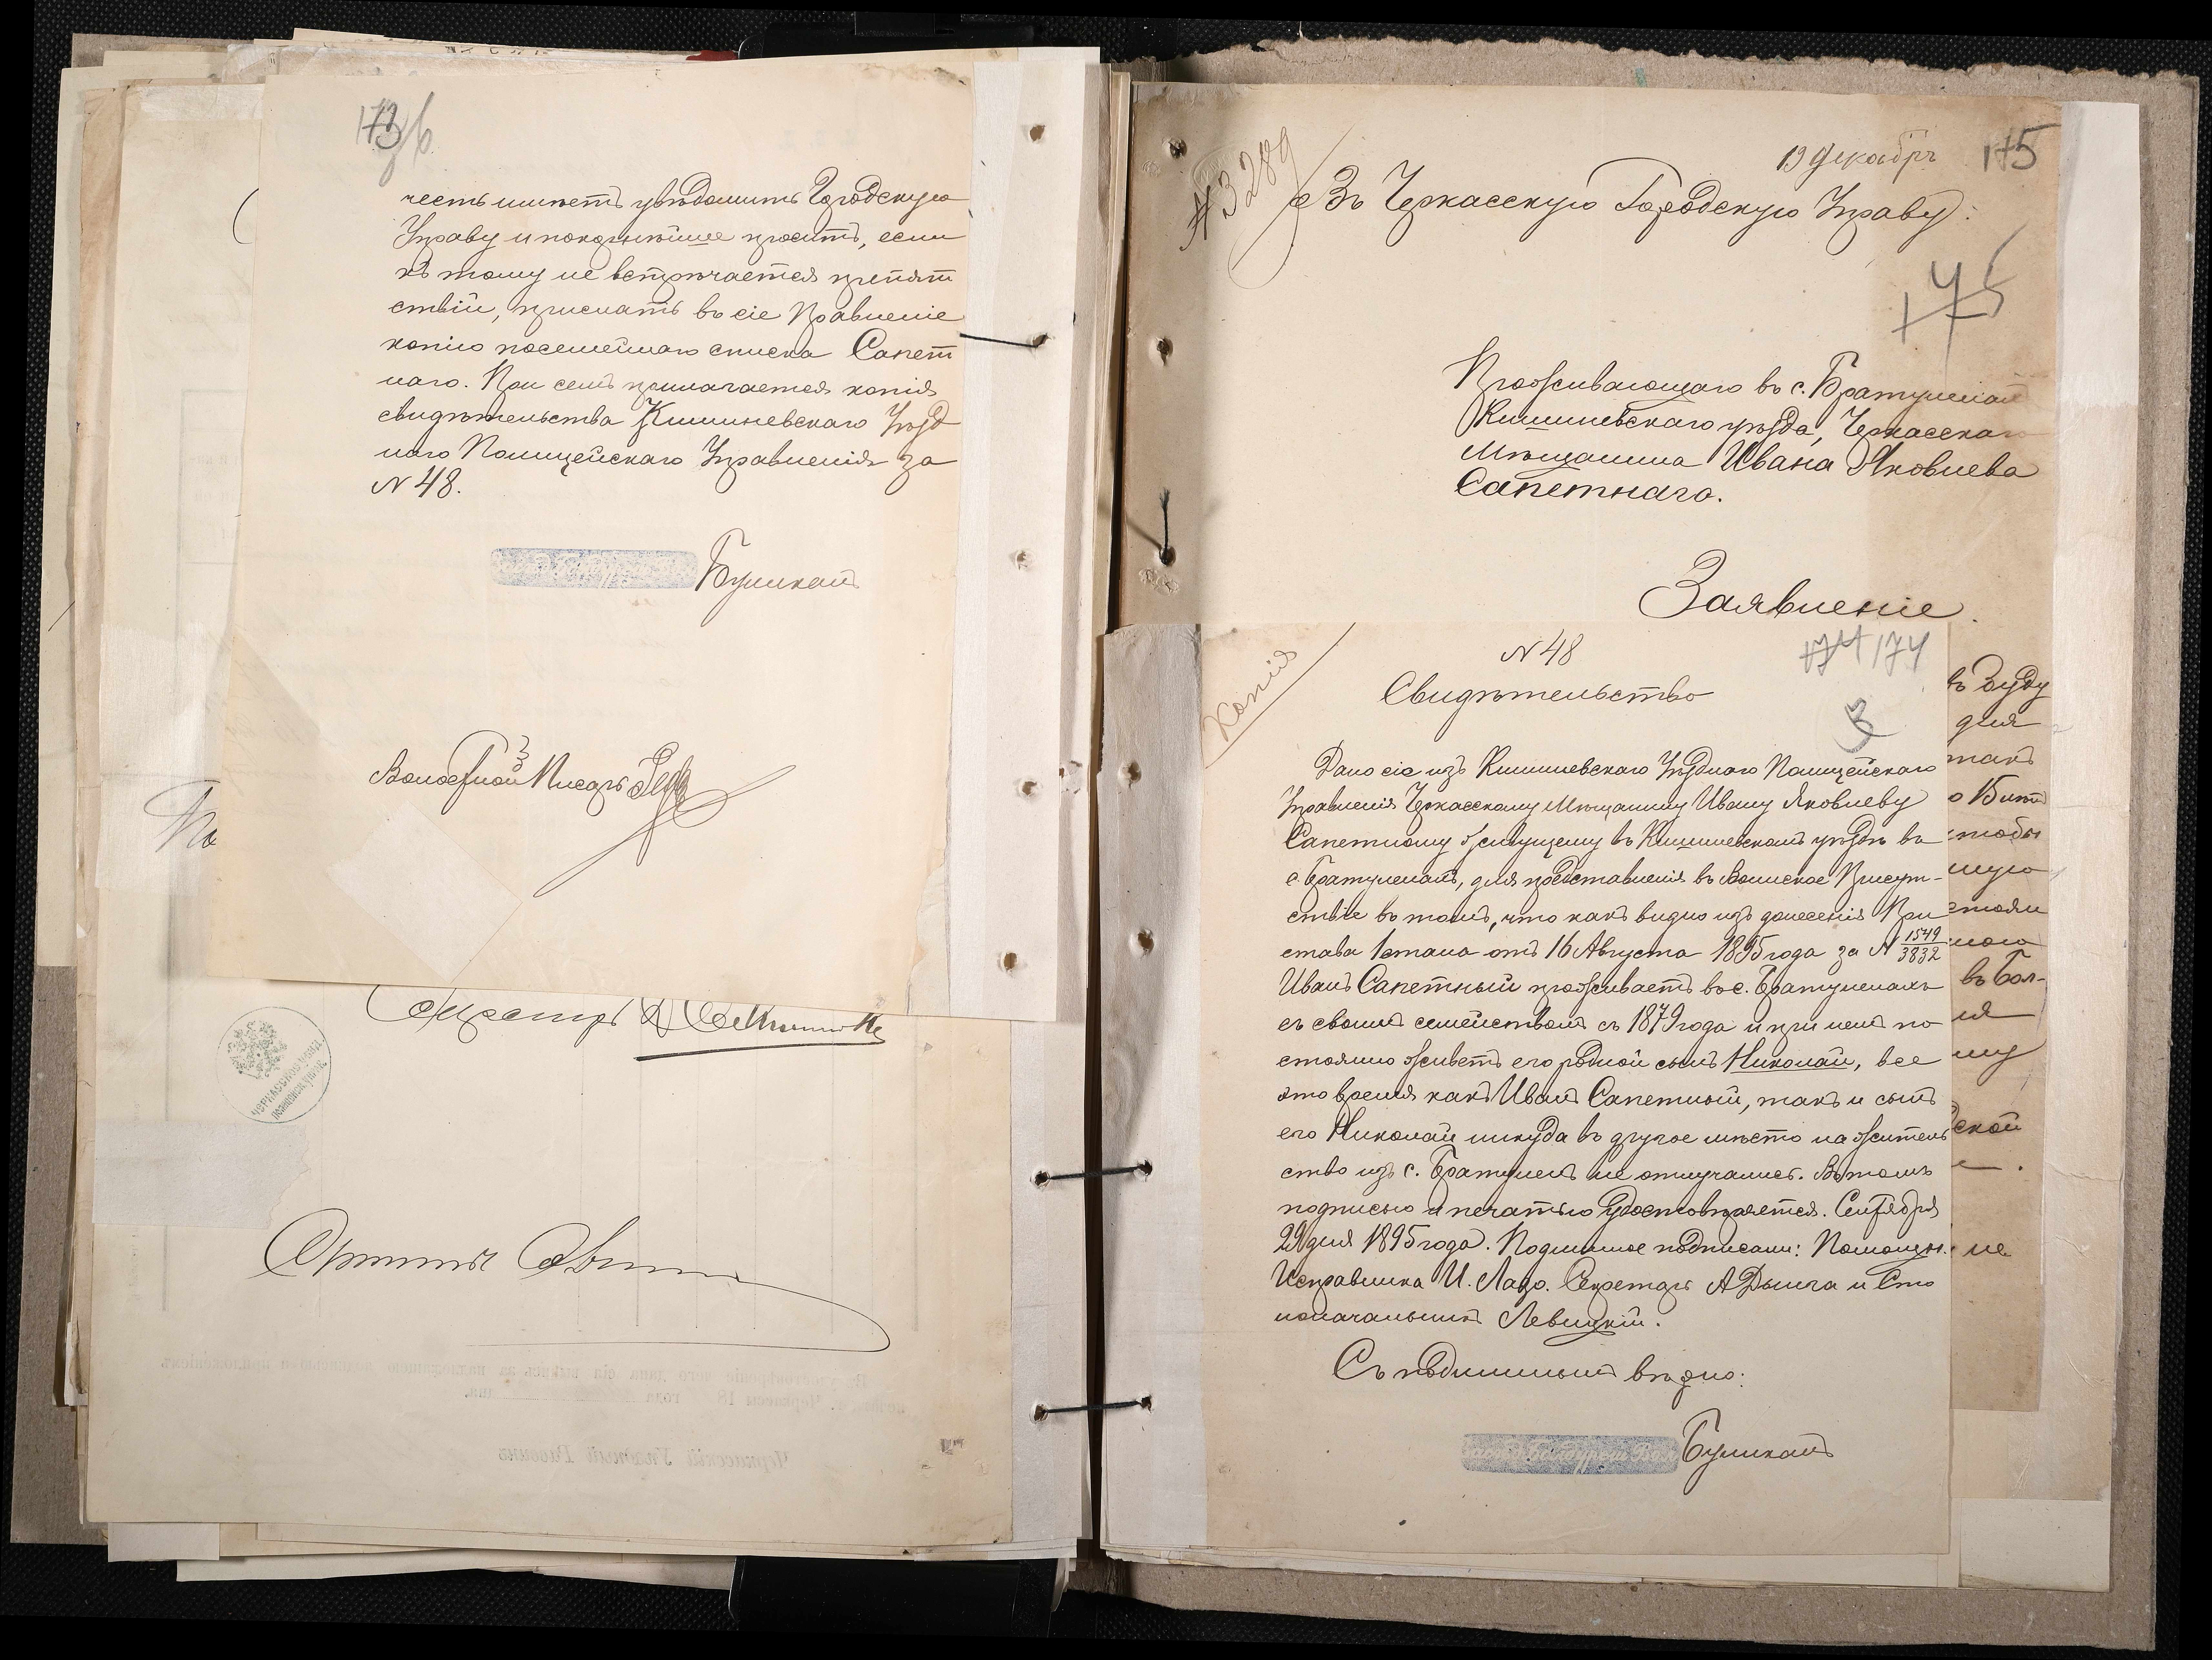 173
честь имѣетъ увѣдомить Городскую
Управу и покорнѣйше проситъ, если
къ тому не встрѣчается препят
ствій, прислать въ сіе Правленіе
копію посемейнаго списка Сапет
наго. При семъ прилагается копія
свидѣтельства Кишиневскаго Уѣзд
наго Полицейскаго Управленія за
N 48.
Волостной Писарь
ЧЕРКАССКОЕ УѢЗД.
Черкасскій Уѣздный Раввинъ
№ 3289
19 Декабря
175
Въ Черкасскую Городскую Управу:
175
Проживающаго въ с. Братуленахъ
Кишиневскаго уѣзда, Черкасскаго
Мѣщанина Ивана Яковлева
Сапетнаго.
Заявленіе.
Копія
N 48
174 174
Свидѣтельство
3
Дано сіе изъ Кишиневскаго Уѣзднаго Полицейскаго
Управленія Черкасскому Мѣщанину Ивану Яковлеву
Сапетному живущему въ Кишиневскомъ уѣздѣ въ
с. Братуленахъ, для представленія въ Воинское Присут-
ствіе въ томъ, что какъ видно изъ донесенія При
става 1 стана отъ 16 Августа 1895 года за N 1549/3832
Иванъ Сапетный проживаетъ въ с. Братуленахъ
съ своимъ семействомъ съ 1879 года и при немъ по
стоянно живетъ его родной сынъ Николай, все
это время какъ Иванъ Сапетный, такъ и сынъ
его Николай никуда въ другое мѣсто на житель
ство изъ с. Братуленъ не отлучались. Въ томъ
подписью и печатью удостовѣряется. Сентября
29 дня 1895 года. Подлинное подписали: Помощн.
Исправника И. Лазо. Секретарь А Дынга и Сто
лоначальникъ Левицкій.
Съ подлиннымъ вѣрно:
для
такъ